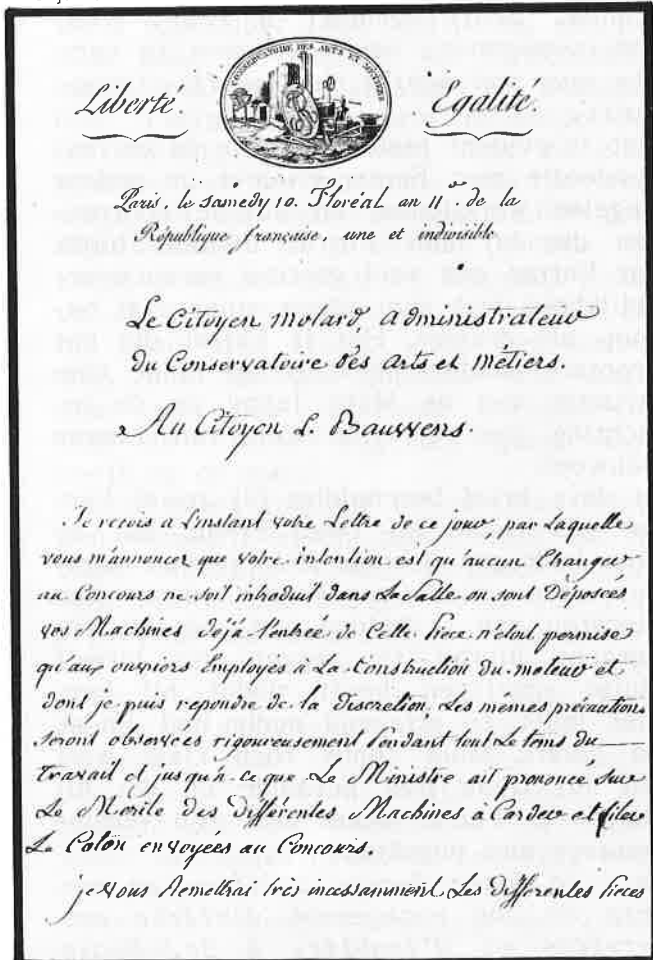 CONSERVATOIRE DES ARTS ET METIERS
Liberté. Egalité.
Paris, le Samedy 10. Floréal an 11e. de la
République françoise, une et indivisible
Le Citoyen molard, administrateur
du Conservatoire des arts et métiers.
Au Citoyen L. Bauwens.
Je reçois a l'instant votre Lettre de ce jour, par Laquelle
vous m'annoncez que votre intention est qu'aucun Etranger
au Concours ne soit introduit dans La Salle ou sont Déposées
vos Machines, déjà l'entrée de Cette Piece n'étoit permise
qu'aux ouvriers Employés à La Construction du moteur et
dont je puis repondre de la Discretion. Les mêmes précautions
seront observées rigoureusement Pendant tout Le tems du
Travail et jusqu'à ce que Le Ministre ait prononcé Sur
Le Mérite des différentes Machines à Carder et filer
Le Coton envoyées au Concours.
je vous Remettrai très incessamment Les differentes Pieces